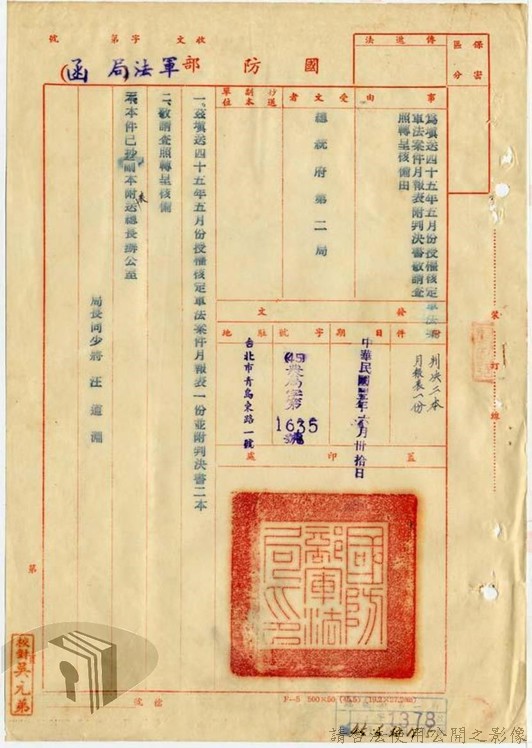 國防部軍法局(函)
收文 字第 號
保密區分
傳遞法
事由
為填送四十五年五月份授權核定軍法案件月報表附判決書敬請查照轉呈核備由
受文者
總統府第二局
抄送副本單位
一、茲填送四十五年五月份授權核定軍法案件月報表一份並附判決書二本
二、敬請查照轉呈核備
本件已抄副本附表送總長辦公室
局長同少將 汪道淵
發文
附件
判決二本
月報表一份
日期
中華民國 年六月 拾日
字號
1635號
駐地
台北市青島東路一號
蓋印處
國防部軍法局之印
裝 訂 線
第
校對 吳元第
檔號
F—5
1378
請合法使用公開之影像